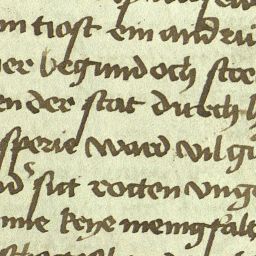 m tiost ein andru
er begund och stre
en der stat durch h
sperie ward vil gu
sit rotten vnge
nie keye menigfalt